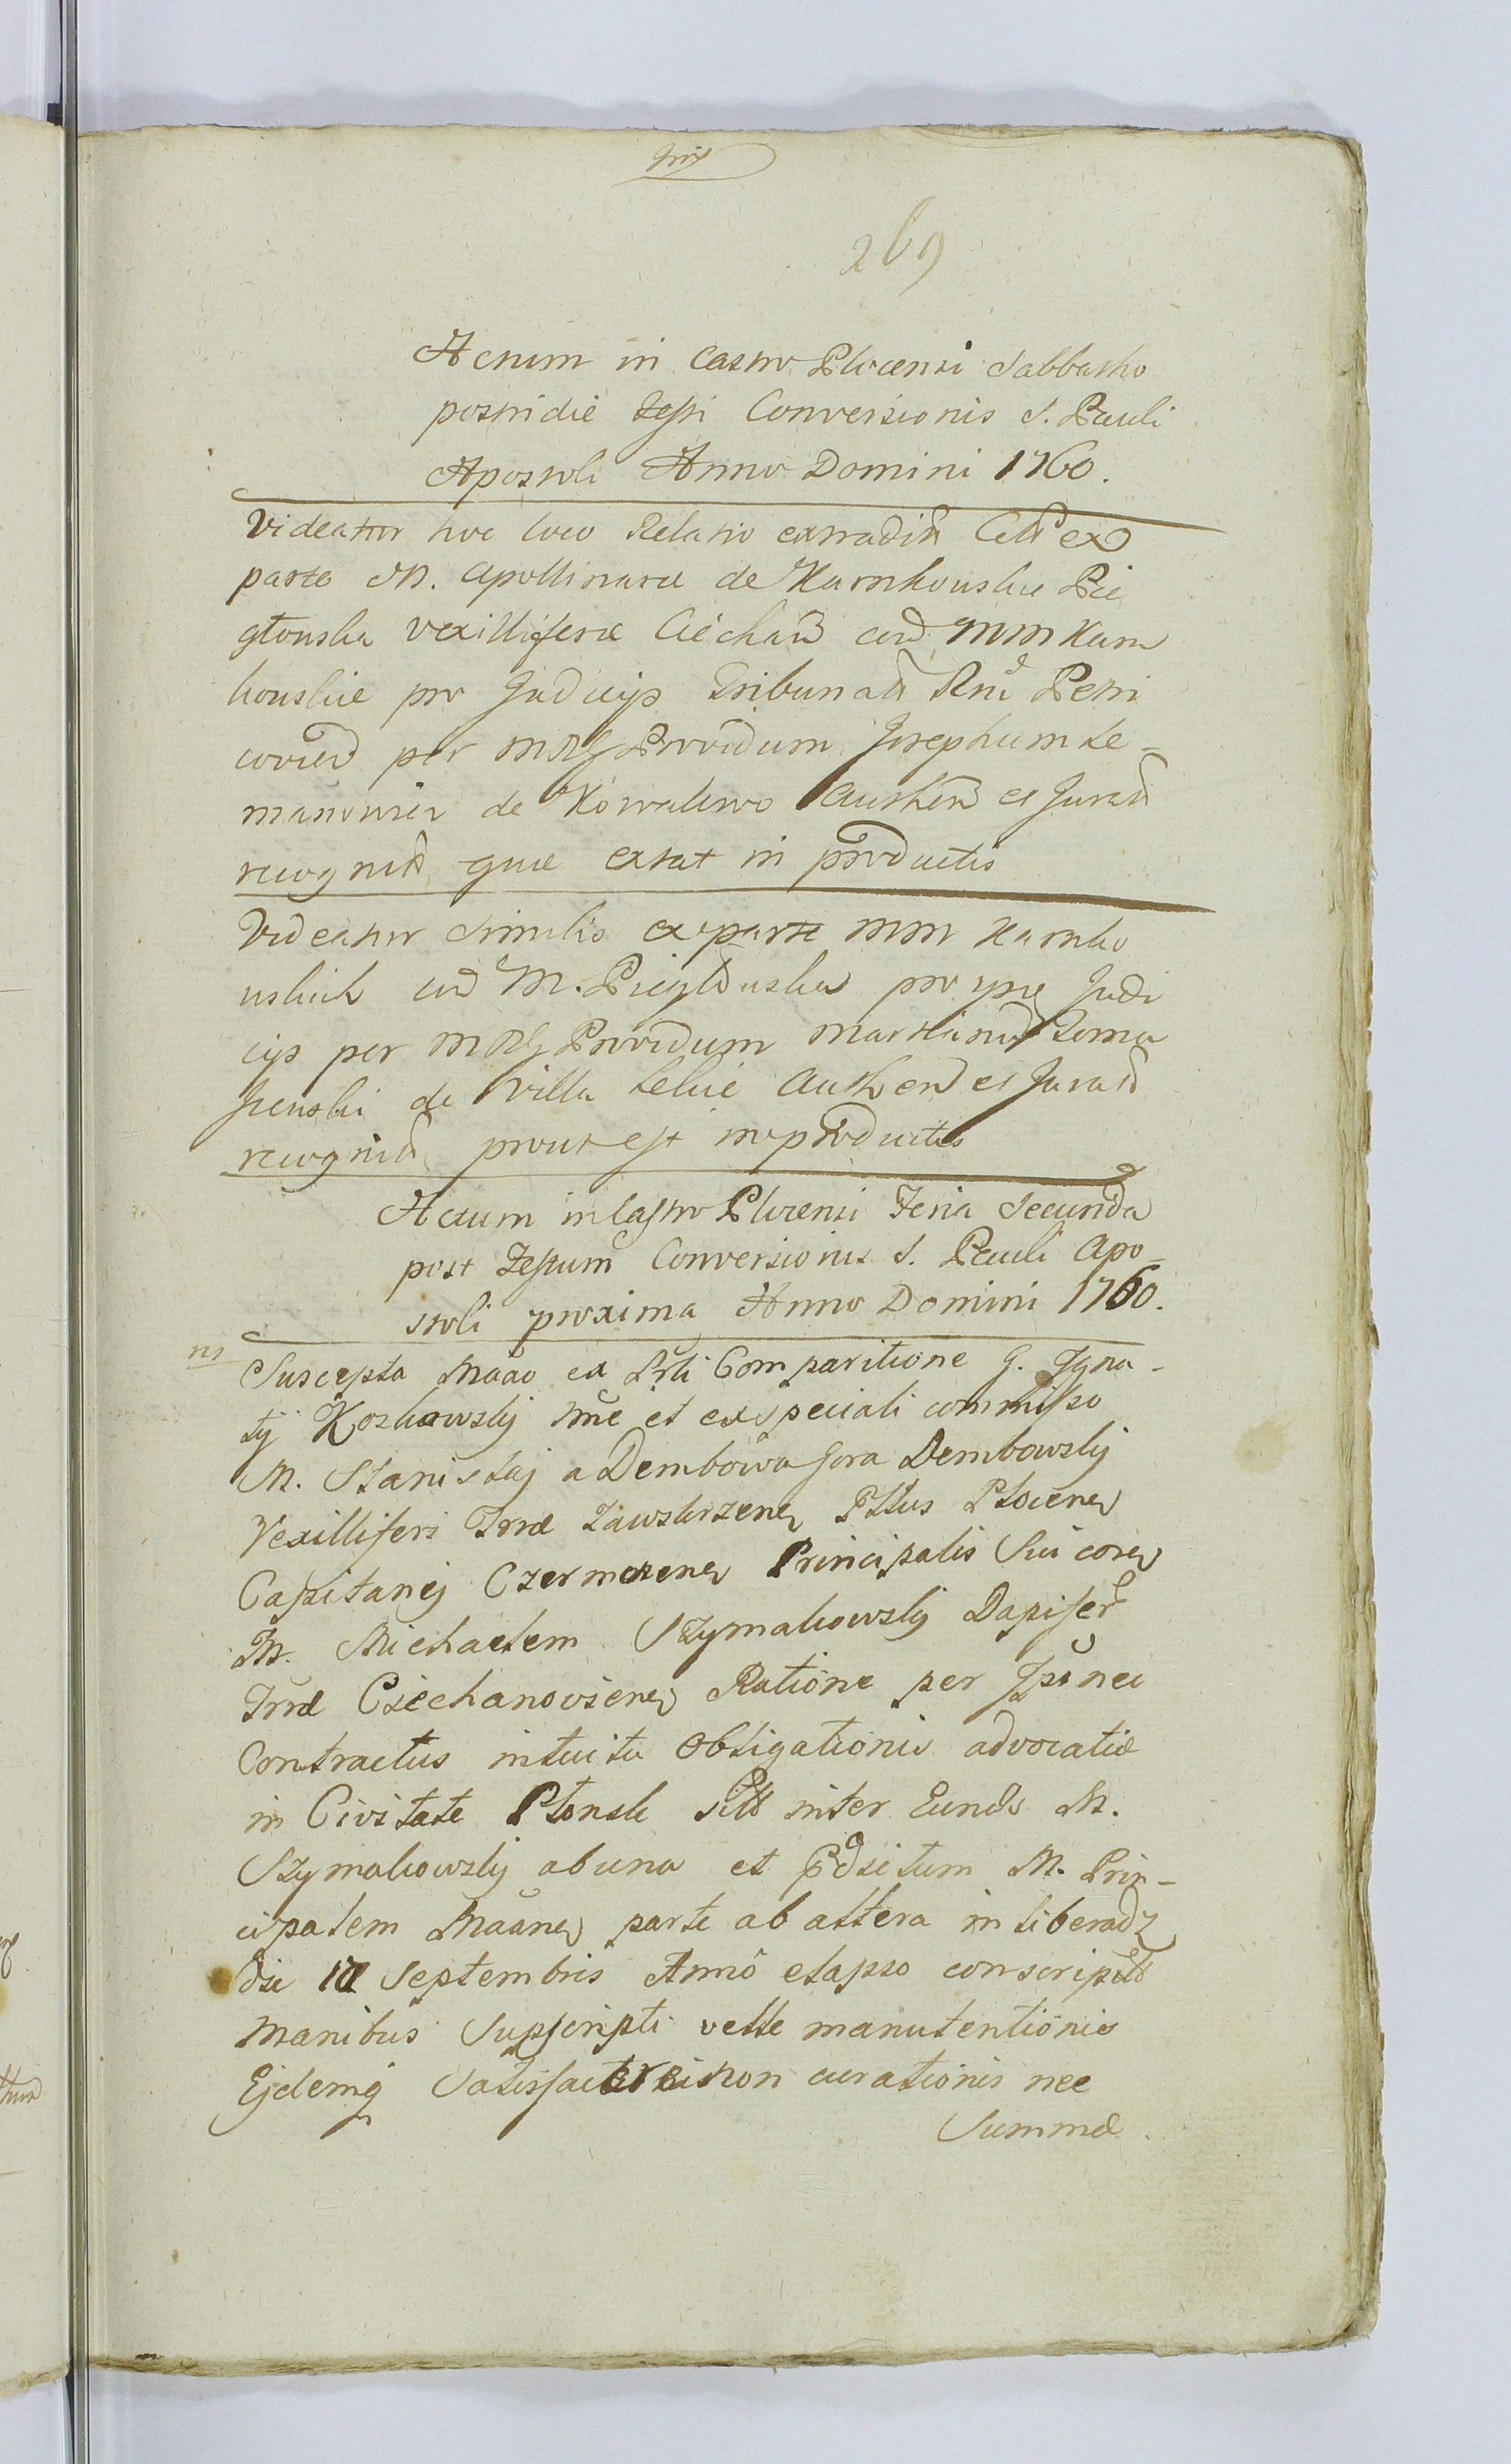 269
Actum in Castro Plocensi Sabbatho
postridie Festi Conversionis S. Pauli
Apostoli Anno Domini 1760.
Videatur hoc loco Relatio extradit Citt ex
parte M. Apollinarae de Karnkouskie Pie
głouska Vexilliferae Ciechan cord MM Karn
kouskie pro Judicijs Tribunalt Rni Petri
covien per MRG Providum Josephum Le-
manowicz de Kowalewo Authen et Jurat
recognit quae extat in productis
Videatur Similis ex parte MM Karnko
uskich cord M. Piegłouska pro ijs Judi
cijs per MRG Providum Martinum Loma
de Villa Lelice Authen et Jurat
recognit prout est in productis
Actum in Castro Plocensi Feria Secunda
post Festum Conversionis S. Pauli Apo-
stoli proxima Anno Domini 1760.
ns
Suscepta Maao ex Prti Comparitione G. Igna-
tij Kozłowskij nme et ex speciali commisso
M. Stanislaj a Dembowa Gora Dembowskij
Vexilliferi Trrae Zawskrzenen Pttus Płocenen
Capitanej Czermenen Principalis Sui coren
M. Michaelem Szymakowskij Dapifer
Trrae Cziechanoviensen Ratione per Ipsnei
Contractus intuitu Obligationis advocatiae
in Civitate Płonsk sitt inter Eunds M.
Szymakowskij ab una et Pdsitum M. Prin-
cipalem Maanen parte ab altera in
die 17 Septembris Anno elapso conscript
Manibus Supscripti velle manutentionis
Ejdemq non curationis nec
Summae